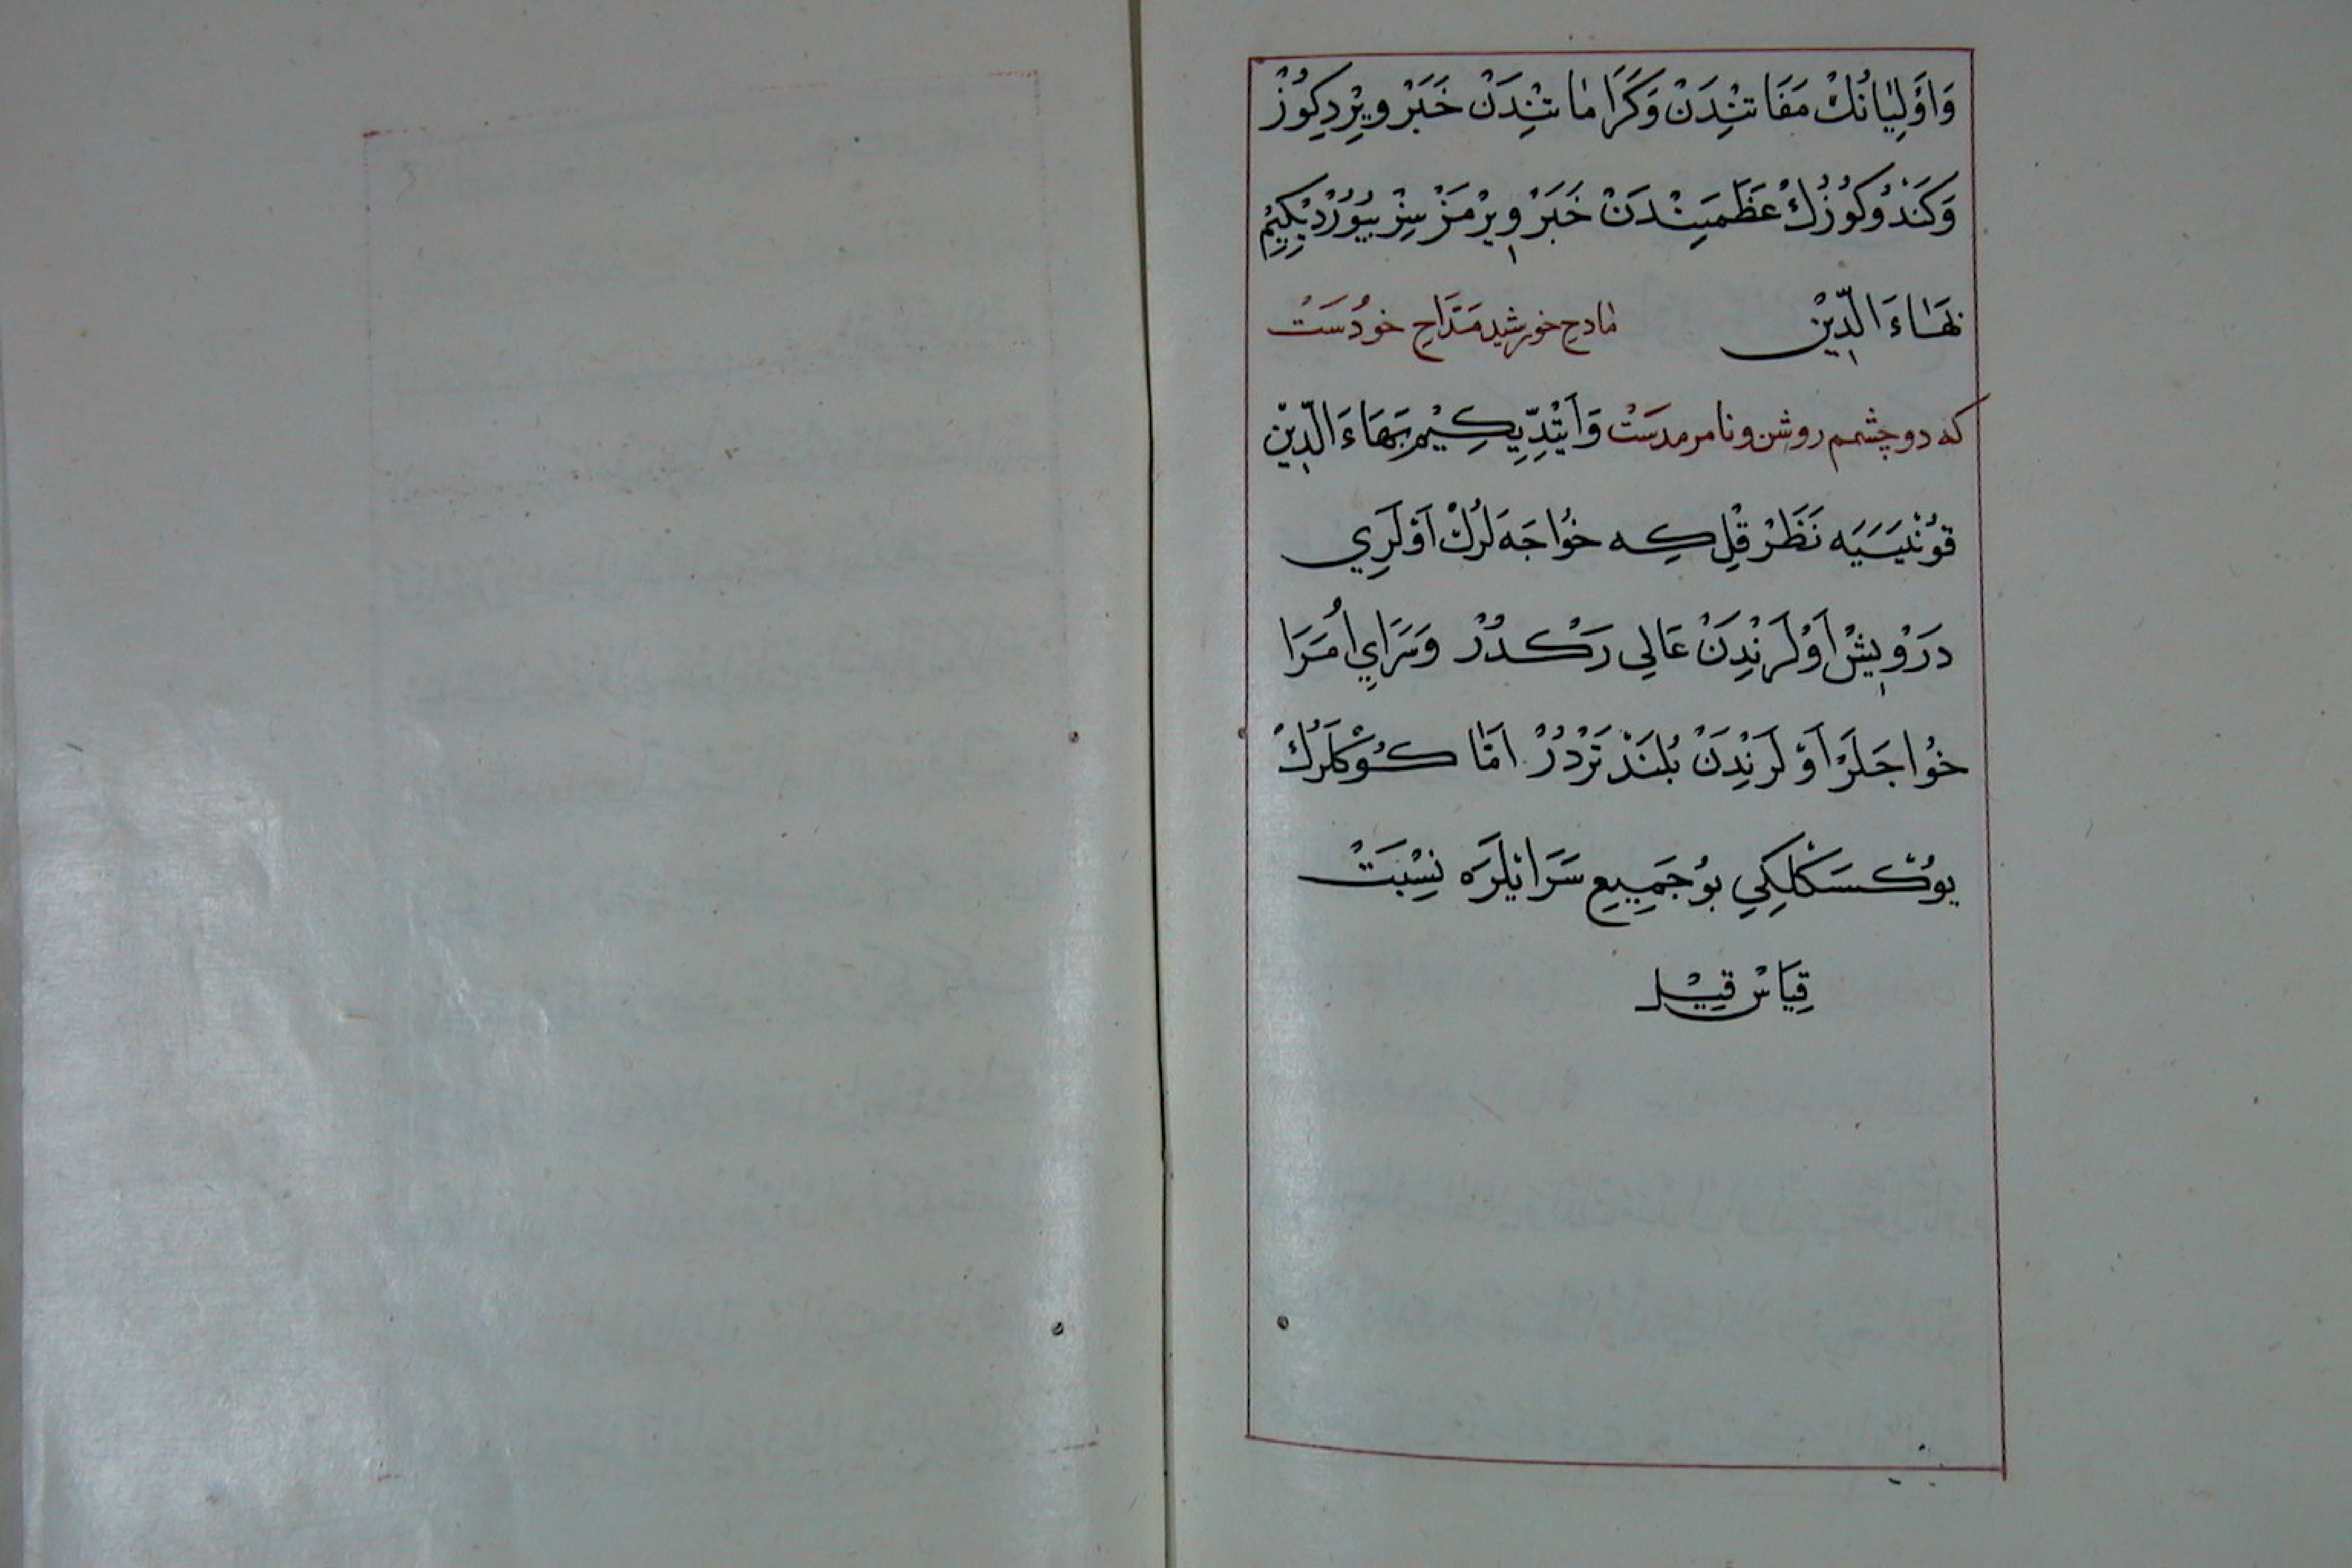 وَاَوْلِيَانُكْ مَقَاتِنْدَنْ وَكَرَامَاتِنْدَنْ خَبَرْ وِيْرِدِكُوْزْ
وَكَنْدُوكُوْزُكْ عَظَمَتِنْدَنْ خَبَرْ وِيرْمَزْسِزْ بُيُوْرْدِيْكِيْمْ
بَهَاءَ الدِّيْنْ مادح خورشید مَدَّاحِ خودَسَتْ
که دو چشمم روشن و نامرمدَسَتْ وَاَيْتِدّيِكِيْمْ بَهَاءَ الدِّيْنْ
قُوْنِيَيَه نَظَرْ قِلْ كِه خُوَاجَه لَرُكْ اَوْلَرِي
دَرْوِيشْ اَوْلَرِنْدَنْ عَالِي رَكْدُرْ وَسَرَايِ اُمَرَا
خُوَاجَلَرْ اَوْلَرِنْدَنْ بُلَنْدْ تَرْدُرْ اَمَّا كُوْكْلَرُكْ
يُوكْسَكْلِكِي بُو جَمِيعِ سَرَايْلَرَه نِسْبَتْ
قِيَاسْ قِيْلْ